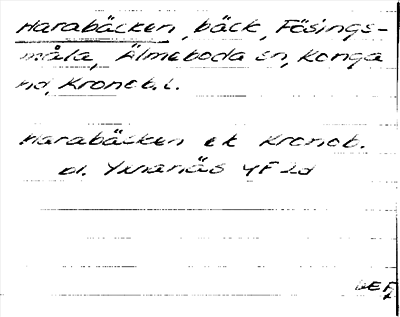 Harabäcken, bäck, Fösings-
måla, Älmeboda sn, Konga
hd, Kronob. l.
Harabäcken ek Kronob.
bl. Yxnanäs 4F 2d